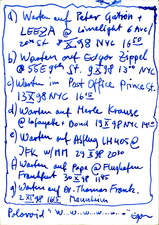 a) Warten auf Peter Gatien +
LEEZA @ Limelight 6 Ave/
20th St X 98 NYC 16 50
b) Warten auf Edgar Zippel
@ 55E 9th St. 9 X 98 13 00 NYC
c) Warten im Post Office Prince St.
13 X 98 NYC 16
d) Warten auf Marke Krause
@ Lafayette + Bond 19 X 98 NYC 14
e) Warten auf LH 405 @
JFK w/MM 29 X 98 20 30
f) Warten auf Papa @ Flughafen
Frankfurt 30 X 98 1145
g) Warten auf Dr. Thomas Frank.
2 XI 98 1615 Mannheim
Polaroid "W...W...W...W...-"